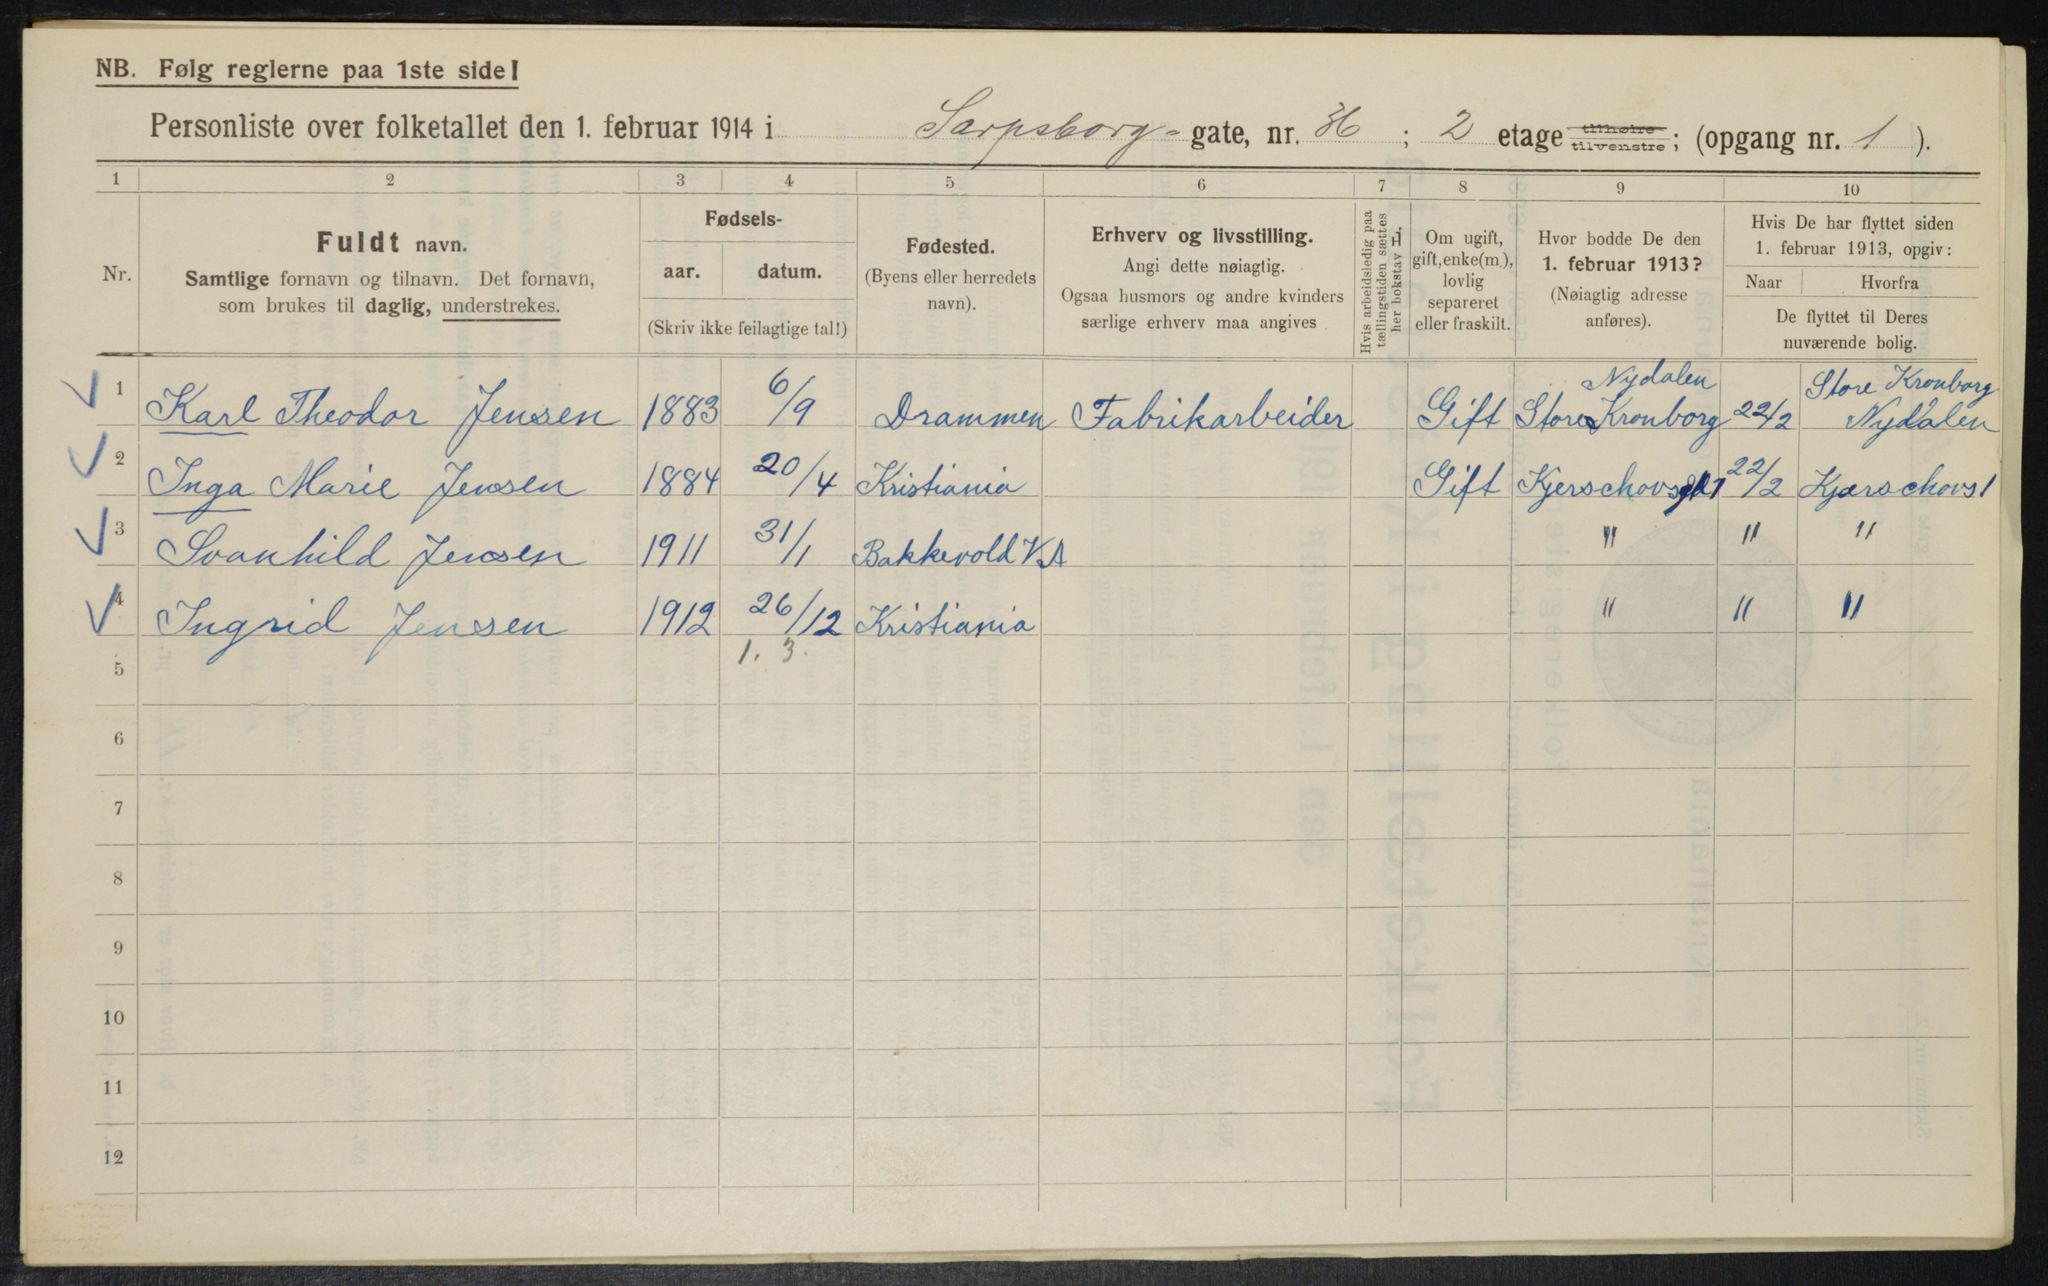 NB. Følg reglerne paa 1ste side!
Personliste over folketallet den 1. februar 1914 i Sarpsborg- gate, nr. 36 ; 2 etage tilhøire tilvenstre ; (opgang nr. 1 ).
1 2 3 4 5 6 7 8 9 10
Nr.
Fuldt navn.
Samtlige fornavn og tilnavn. Det fornavn,
som brukes til daglig, understrekes.
Fødsels-
aar. datum.
(Skriv ikke feilagtige tal!)
Fødested.
(Byens eller herredets
navn).
Erhverv og livsstilling.
Angi dette nøiagtig.
Ogsaa husmors og andre kvinders
særlige erhverv maa angives
Hvis arbeidsledig paa
tællingstiden sættes
her bokstav L.
Om ugift,
gift, enke(m.),
lovlig
separeret
eller fraskilt.
Hvor bodde De den
1. februar 1913?
(Nøiagtig adresse
anføres).
Hvis De har flyttet siden
1. februar 1913, opgiv:
Naar Hvorfra
De flyttet til Deres
nuværende bolig.
1 Karl Theodor Jensen 1883 6/9 Drammen Fabrikarbeider Gift Nydalen Store Kronborg 22/2 Store Kronborg Nydalen
2 Inga Marie Jensen 1884 20/4 Kristiania Gift Kjerschovsgt 1 22/2 Kjærschovs 1
3 Svanhild Jensen 1911 31/1 Bakkevold V.A " " "
4 Ingrid Jensen 1912 26/12 Kristiania " " "
1. 3.
5
6
7
8
9
10
11
12